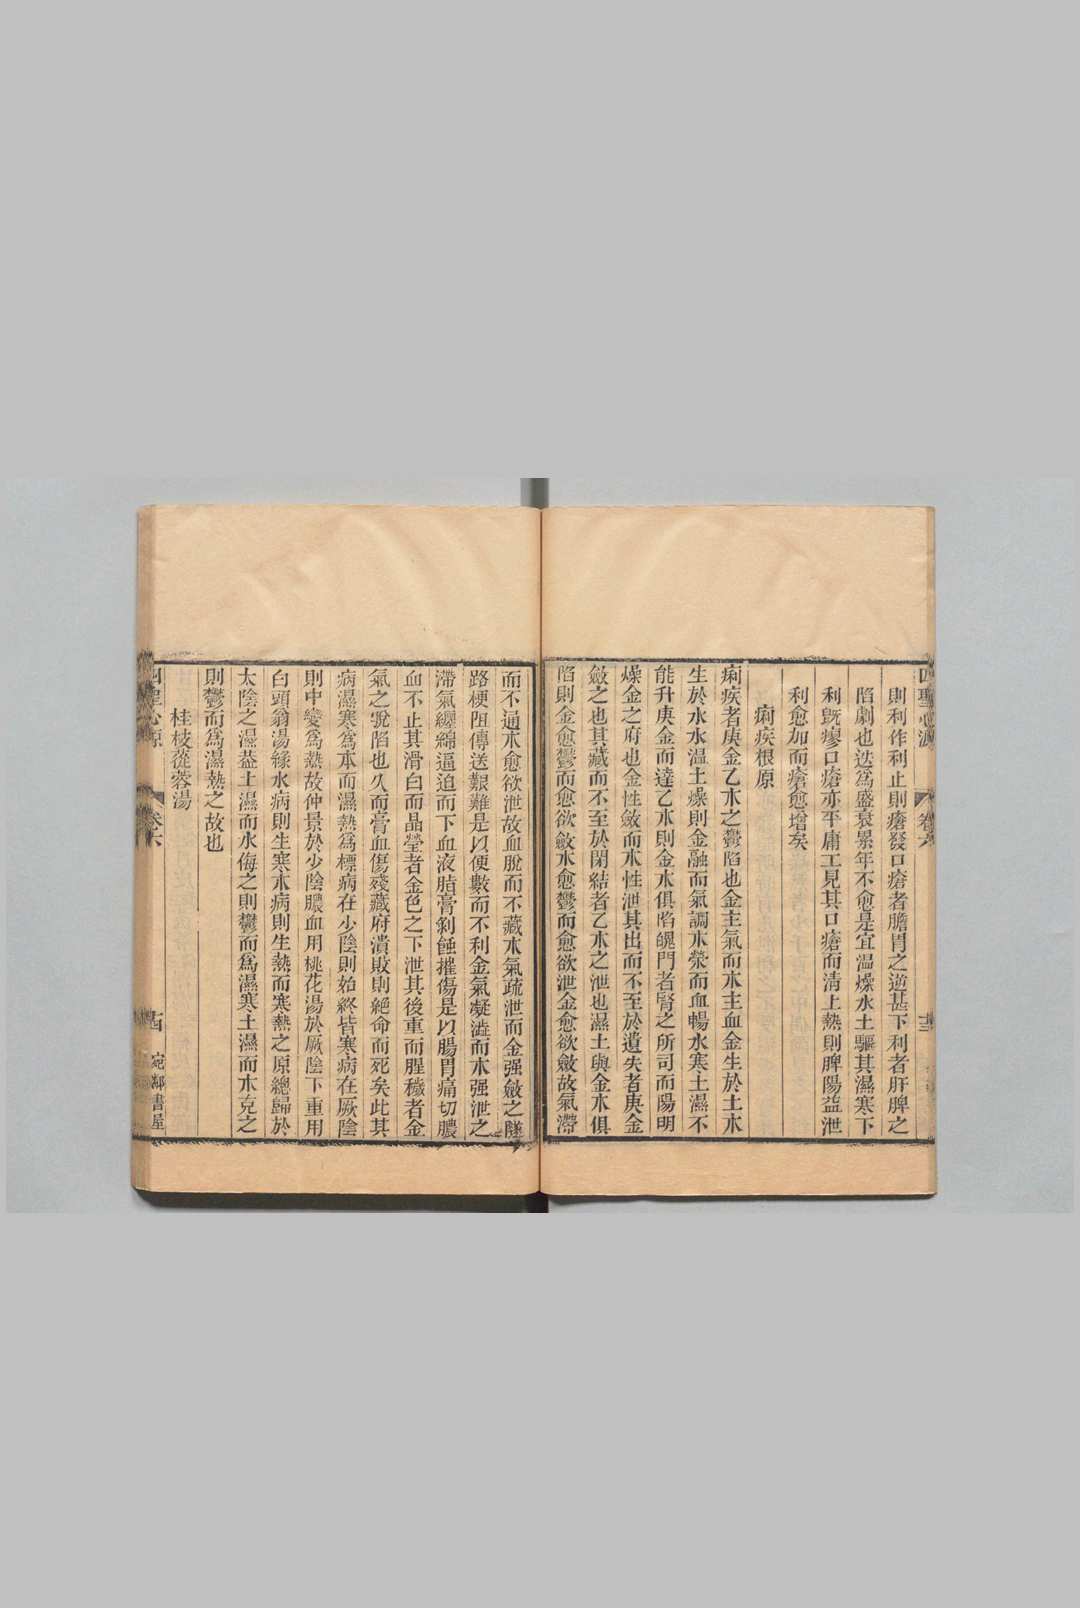 四聖心源
卷六
十三
則利作利止則瘡發口瘡者膽胃之逆甚下利者肝脾之
陷劇也迭爲盛衰累年不愈是宜温燥水土驅其濕寒下
利旣瘳口瘡亦平庸工見其口瘡而清上熱則脾陽益泄
利愈加而瘡愈增矣
痢疾根原
痢疾者庚金乙木之鬱陷也金主氣而木主血金生於土木
生於水水温土燥則金融而氣調木榮而血暢水寒土濕不
能升庚金而達乙木則金木俱陷魄門者腎之所司而陽明
燥金之府也金性斂而木性泄其出而不至於遺失者庚金
斂之也其藏而不至於閉結者乙木之泄也濕土與金木俱
陷則金愈鬱而愈欲斂木愈鬱而愈欲泄金愈欲斂故氣滯
而不通木愈欲泄故血脫而不藏木氣疏泄而金强斂之隧
路梗阻傳送艱難是以便數而不利金氣凝澁而木强泄之
滯氣纏綿逼迫而下血液脂膏剝蝕摧傷是以腸胃痛切膿
血不止其滑白而晶瑩者金色之下泄其後重而腥穢者金
氣之脫陷也久而膏血傷殘藏府潰敗則絕命而死矣此其
病濕寒爲本而濕熱爲標病在少陰則始終皆寒病在厥陰
則中變爲熱故仲景於少陰膿血用桃花湯於厥陰下重用
白頭翁湯緣水病則生寒木病則生熱而寒熱之原總歸於
太陰之濕葢土濕而水侮之則鬱而爲濕寒土濕而木克之
則鬱而爲濕熱之故也
桂枝蓯蓉湯
四聖心原
卷六
十四
宛鄰書屋